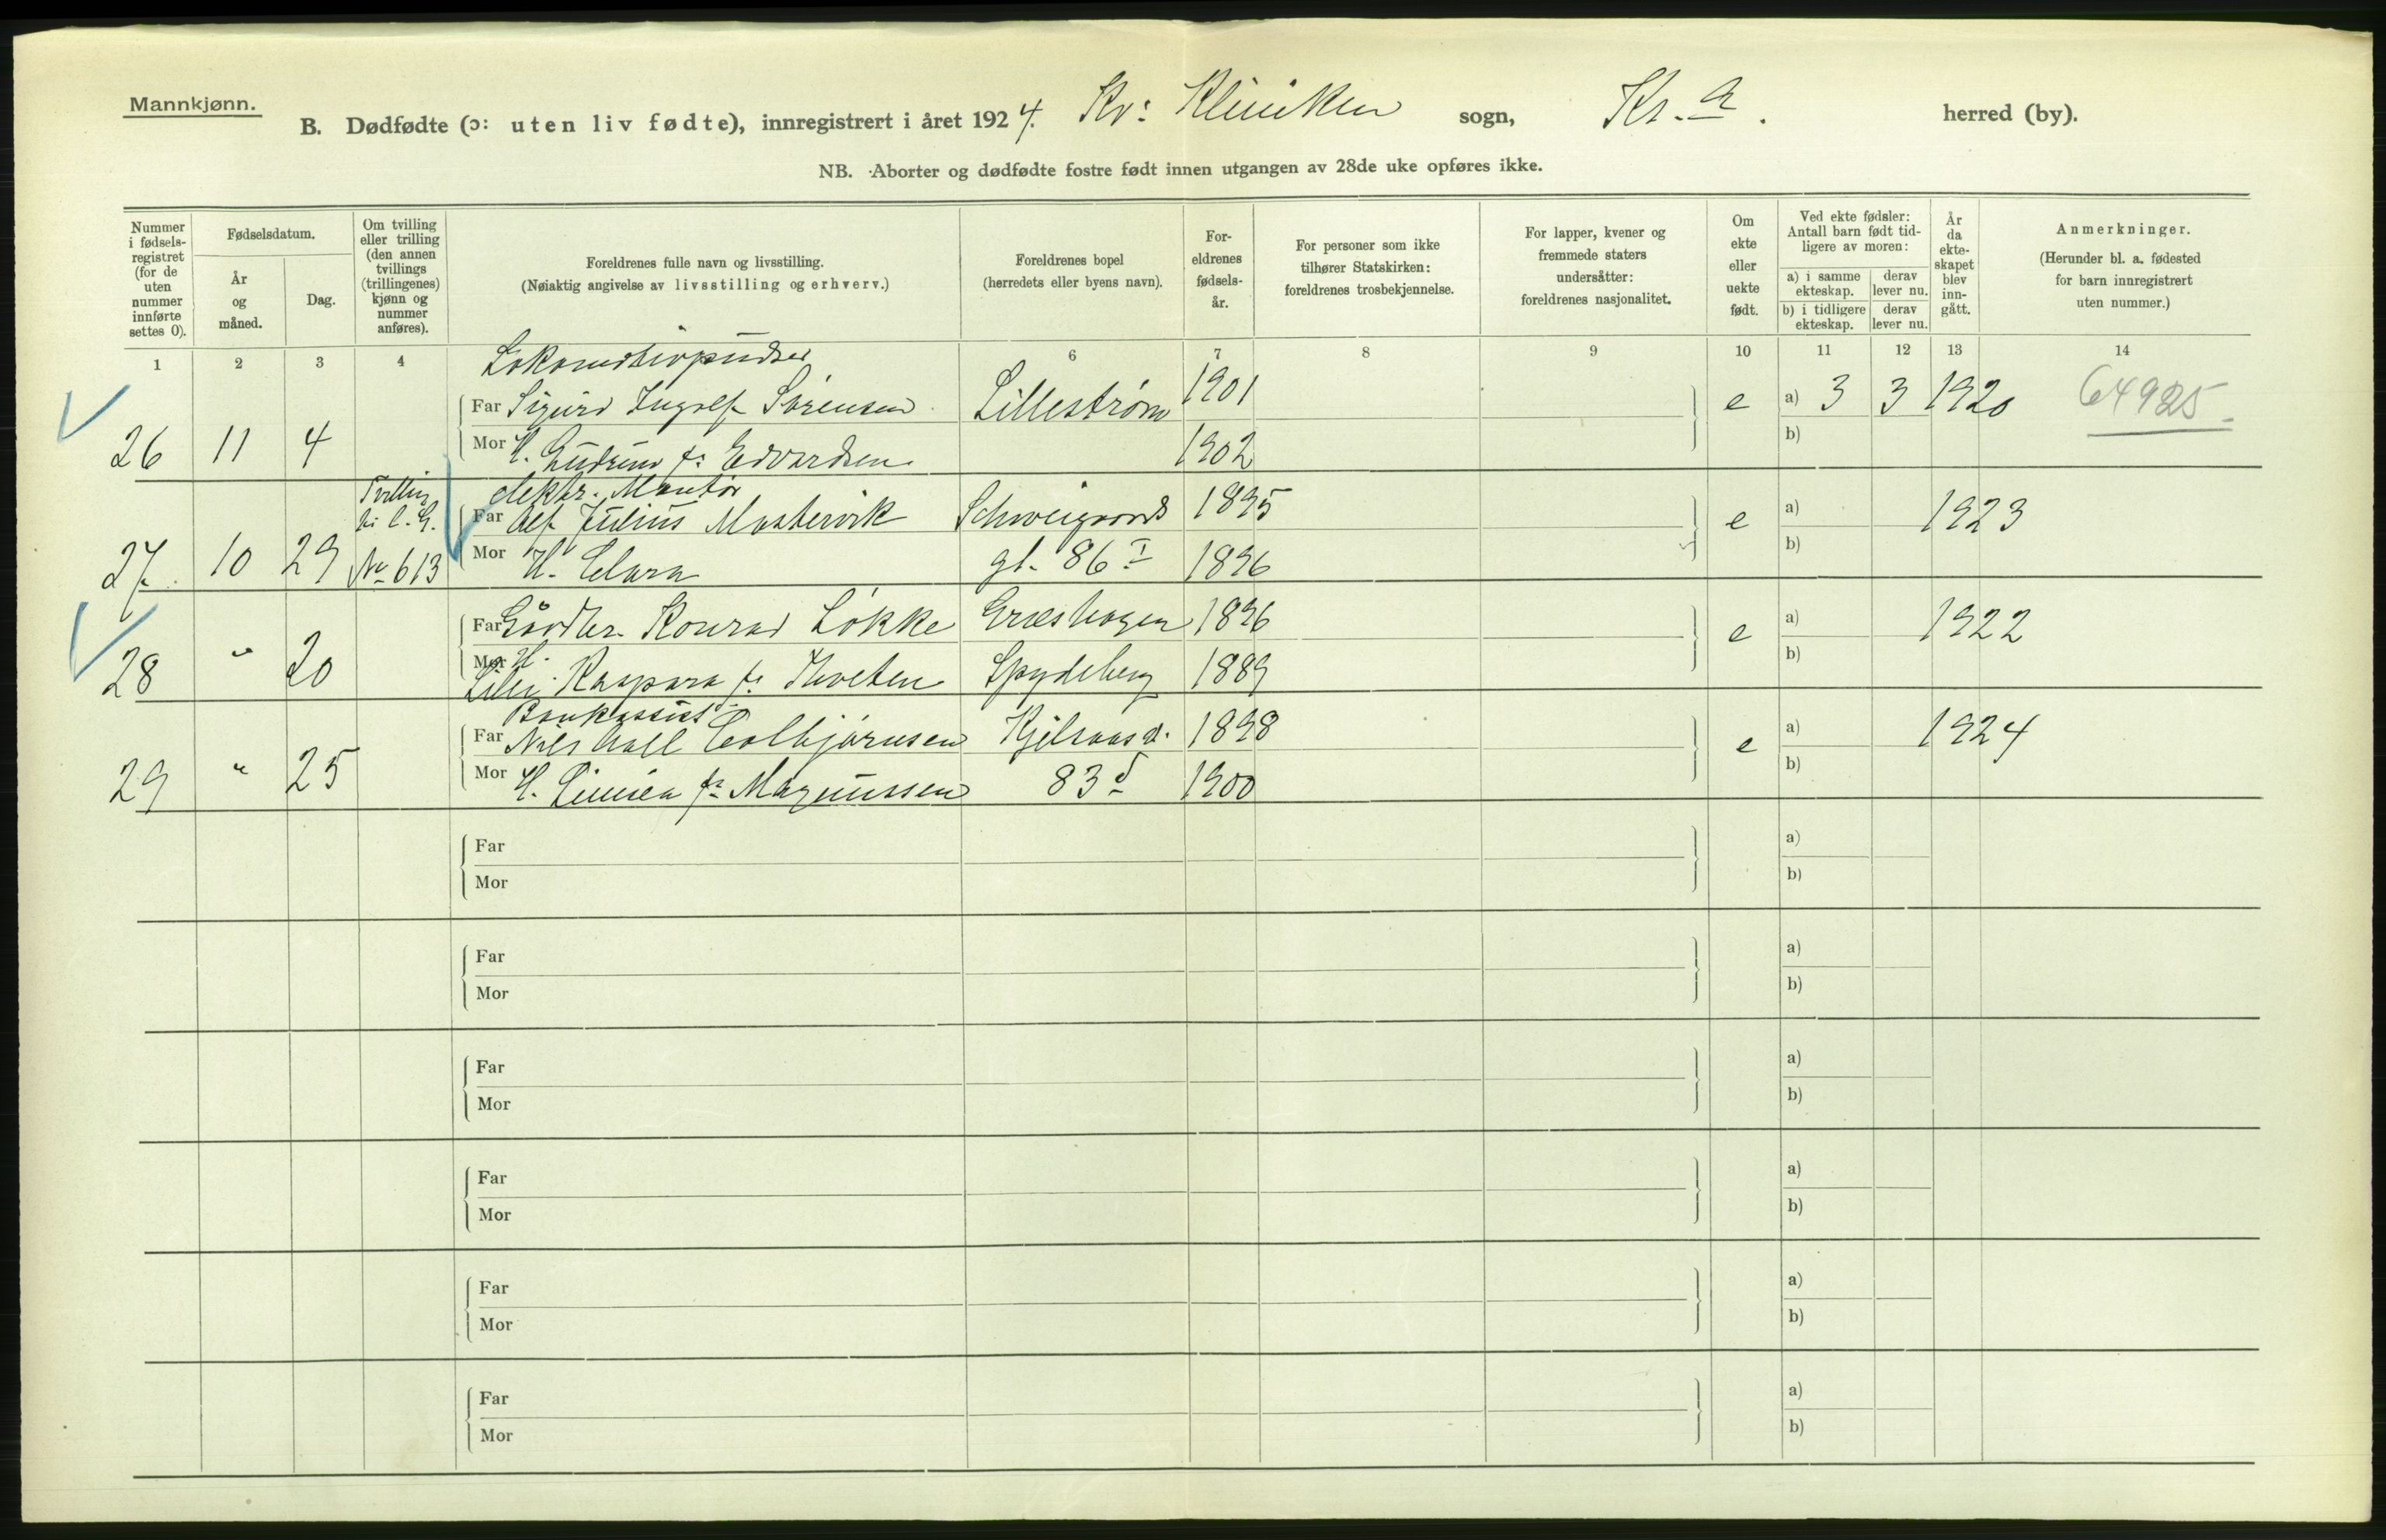 Mannkjønn.
B. Dødfødte (ɔ: uten liv fødte), innregistrert i året 1924. Kv: Kliniken sogn, Kr.a. herred (by).
NB. Aborter og dødfødte fostre født innen utgangen av 28de uke opføres ikke.
Nummer i fødsels-registret (for de uten nummer innførte settes 0).
Fødselsdatum.
År og måned.
Dag.
Om tvilling eller trilling (den annen tvillings (trillingenes) kjønn og nummer anføres).
Foreldrenes fulle navn og livsstilling.
(Nøiaktig angivelse av livsstilling og erhverv.)
Foreldrenes bopel
(herredets eller byens navn).
For-eldrenes fødsels-år.
For personer som ikke tilhører Statskirken: foreldrenes trosbekjennelse.
For lapper, kvener og fremmede staters undersåtter: foreldrenes nasjonalitet.
Om ekte eller uekte født.
Ved ekte fødsler: Antall barn født tid-ligere av moren:
a) i samme ekteskap.
derav lever nu.
b) i tidligere ekteskap.
derav lever nu.
År da ekte-skapet blev inn-gått.
Anmerkninger.
(Herunder bl. a. fødested for barn innregistrert uten nummer.)
1 2 3 4 6 7 8 9 10 11 12 13 14
Lokomotivpudser
Far Sigurd Ingolf Sørensen Lillestrøm 1901 e a) 3 3 1920 64925
26 11 4 Mor H. Gudrun f: Edvardsen 1902 b)
Tvilling elektr. Montør
Far Alf Julius Mastervik Schweigaards 1895 e a) 1923
27. 10 29 No 613 Mor H. Clara gt. 86 I 1896 b)
Far Gårdbr. Konrad Løkke 1896 e a) 1922
28 " 20 Mor H. Kaspara f: Spydeberg 1889 b)
Bankassist.
Far Nils Colbjørnsen Kjelsaas v. 1898 e a) 1924
29 " 25 Mor H. f: Magnussen 83 d 1900 b)
Far a)
Mor b)
Far a)
Mor b)
Far a)
Mor b)
Far a)
Mor b)
Far a)
Mor b)
Far a)
Mor b)